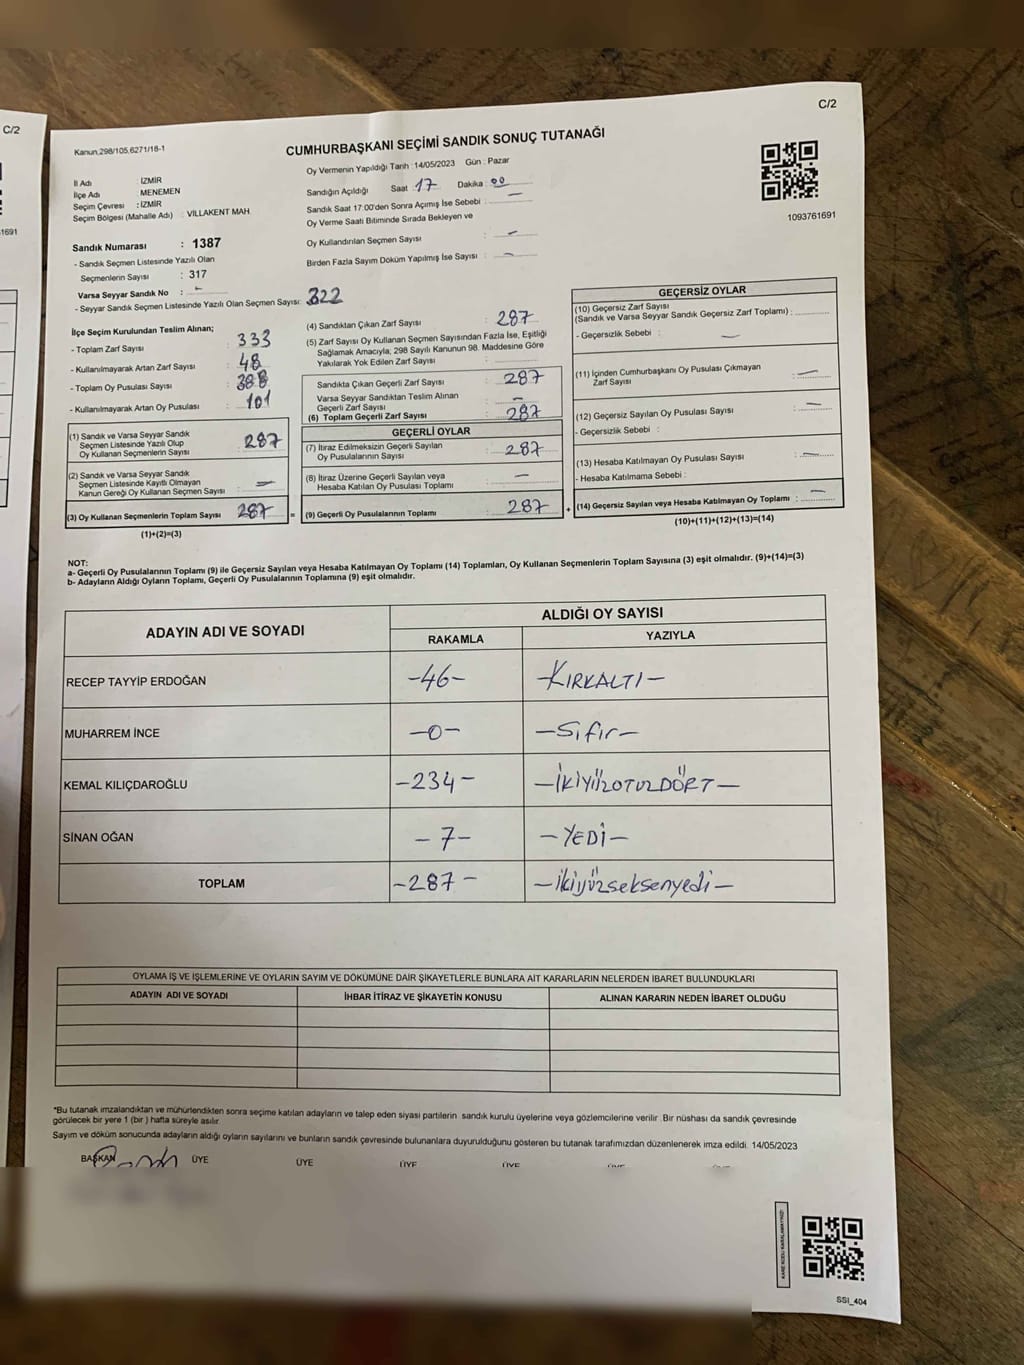 C/2
1691
C/2
Kanun,298/105,6271/18-1
CUMHURBAŞKANI SEÇİMİ SANDIK SONUÇ TUTANAĞI
1093761691
İl Adı : İZMİR
İlçe Adı : MENEMEN
Seçim Çevresi : İZMİR
Seçim Bölgesi (Mahalle Adı) : VİLLAKENT MAH
Sandık Numarası : 1387
- Sandık Seçmen Listesinde Yazılı Olan
Seçmenlerin Sayısı : 317
Varsa Seyyar Sandık No : -
- Seyyar Sandık Seçmen Listesinde Yazılı Olan Seçmen Sayısı: 322
Oy Vermenin Yapıldığı Tarih : 14/05/2023 Gün : Pazar
Sandığın Açıldığı Saat 17 Dakika : 00
Sandık Saat 17:00'den Sonra Açımış İse Sebebi : —
Oy Verme Saati Bitiminde Sırada Bekleyen ve
Oy Kullandırılan Seçmen Sayısı : —
Birden Fazla Sayım Döküm Yapılmış İse Sayısı : —
İlçe Seçim Kurulundan Teslim Alınan;
- Toplam Zarf Sayısı : 333
- Kullanılmayarak Artan Zarf Sayısı : 48
- Toplam Oy Pusulası Sayısı : 388
- Kullanılmayarak Artan Oy Pusulası : 101
(1) Sandık ve Varsa Seyyar Sandık
Seçmen Listesinde Yazılı Olup
Oy Kullanan Seçmenlerin Sayısı : 287
(2) Sandık ve Varsa Seyyar Sandık
Seçmen Listesinde Kayıtlı Olmayan
Kanun Gereği Oy Kullanan Seçmen Sayısı : —
(3) Oy Kullanan Seçmenlerin Toplam Sayısı 287 =
(1)+(2)=(3)
(4) Sandıktan Çıkan Zarf Sayısı : 287
(5) Zarf Sayısı Oy Kullanan Seçmen Sayısından Fazla İse, Eşitliği
Sağlamak Amacıyla; 298 Sayılı Kanunun 98. Maddesine Göre
Yakılarak Yok Edilen Zarf Sayısı :
Sandıkta Çıkan Geçerli Zarf Sayısı : 287
Varsa Seyyar Sandıktan Teslim Alınan
Geçerli Zarf Sayısı : —
(6) Toplam Geçerli Zarf Sayısı : 287
GEÇERLİ OYLAR
(7) İtiraz Edilmeksizin Geçerli Sayılan
Oy Pusulalarının Sayısı : 287
(8) İtiraz Üzerine Geçerli Sayılan veya
Hesaba Katılan Oy Pusulası Toplamı : —
(9) Geçerli Oy Pusulalarının Toplamı : 287 +
GEÇERSİZ OYLAR
(10) Geçersiz Zarf Sayısı
(Sandık ve Varsa Seyyar Sandık Geçersiz Zarf Toplamı) :
- Geçersizlik Sebebi : —
(11) İçinden Cumhurbaşkanı Oy Pusulası Çıkmayan
Zarf Sayısı : —
(12) Geçersiz Sayılan Oy Pusulası Sayısı : —
- Geçersizlik Sebebi :
(13) Hesaba Katılmayan Oy Pusulası Sayısı : —
- Hesaba Katılmama Sebebi :
(14) Geçersiz Sayılan veya Hesaba Katılmayan Oy Toplamı : —
(10)+(11)+(12)+(13)=(14)
NOT:
a- Geçerli Oy Pusulalarının Toplamı (9) ile Geçersiz Sayılan veya Hesaba Katılmayan Oy Toplamı (14) Toplamları, Oy Kullanan Seçmenlerin Toplam Sayısına (3) eşit olmalıdır. (9)+(14)=(3)
b- Adayların Aldığı Oyların Toplamı, Geçerli Oy Pusulalarının Toplamına (9) eşit olmalıdır.
ADAYIN ADI VE SOYADI ALDIĞI OY SAYISI
RAKAMLA YAZIYLA
RECEP TAYYİP ERDOĞAN -46- -KIRKALTI-
MUHARREM İNCE -0- -Sıfır-
KEMAL KILIÇDAROĞLU -234- -İKİYÜZOTUZDÖRT-
SİNAN OĞAN -7- -YEDİ-
TOPLAM -287- -ikiyüzseksenyedi-
OYLAMA İŞ VE İŞLEMLERİNE VE OYLARIN SAYIM VE DÖKÜMÜNE DAİR ŞİKAYETLERLE BUNLARA AİT KARARLARIN NELERDEN İBARET BULUNDUKLARI
ADAYIN ADI VE SOYADI İHBAR İTİRAZ VE ŞİKAYETİN KONUSU ALINAN KARARIN NEDEN İBARET OLDUĞU
*Bu tutanak imzalandıktan ve mühürlendikten sonra seçime katılan adayların ve talep eden siyasi partilerin sandık kurulu üyelerine veya gözlemcilerine verilir. Bir nüshası da sandık çevresinde
görülecek bir yere 1 (bir ) hafta süreyle asılır.
Sayım ve döküm sonucunda adayların aldığı oyların sayılarını ve bunların sandık çevresinde bulunanlara duyurulduğunu gösteren bu tutanak tarafımızdan düzenlenerek imza edildi. 14/05/2023
BAŞKAN ÜYE ÜYE ÜYE ÜYE ÜYE ÜYE
SSI_404